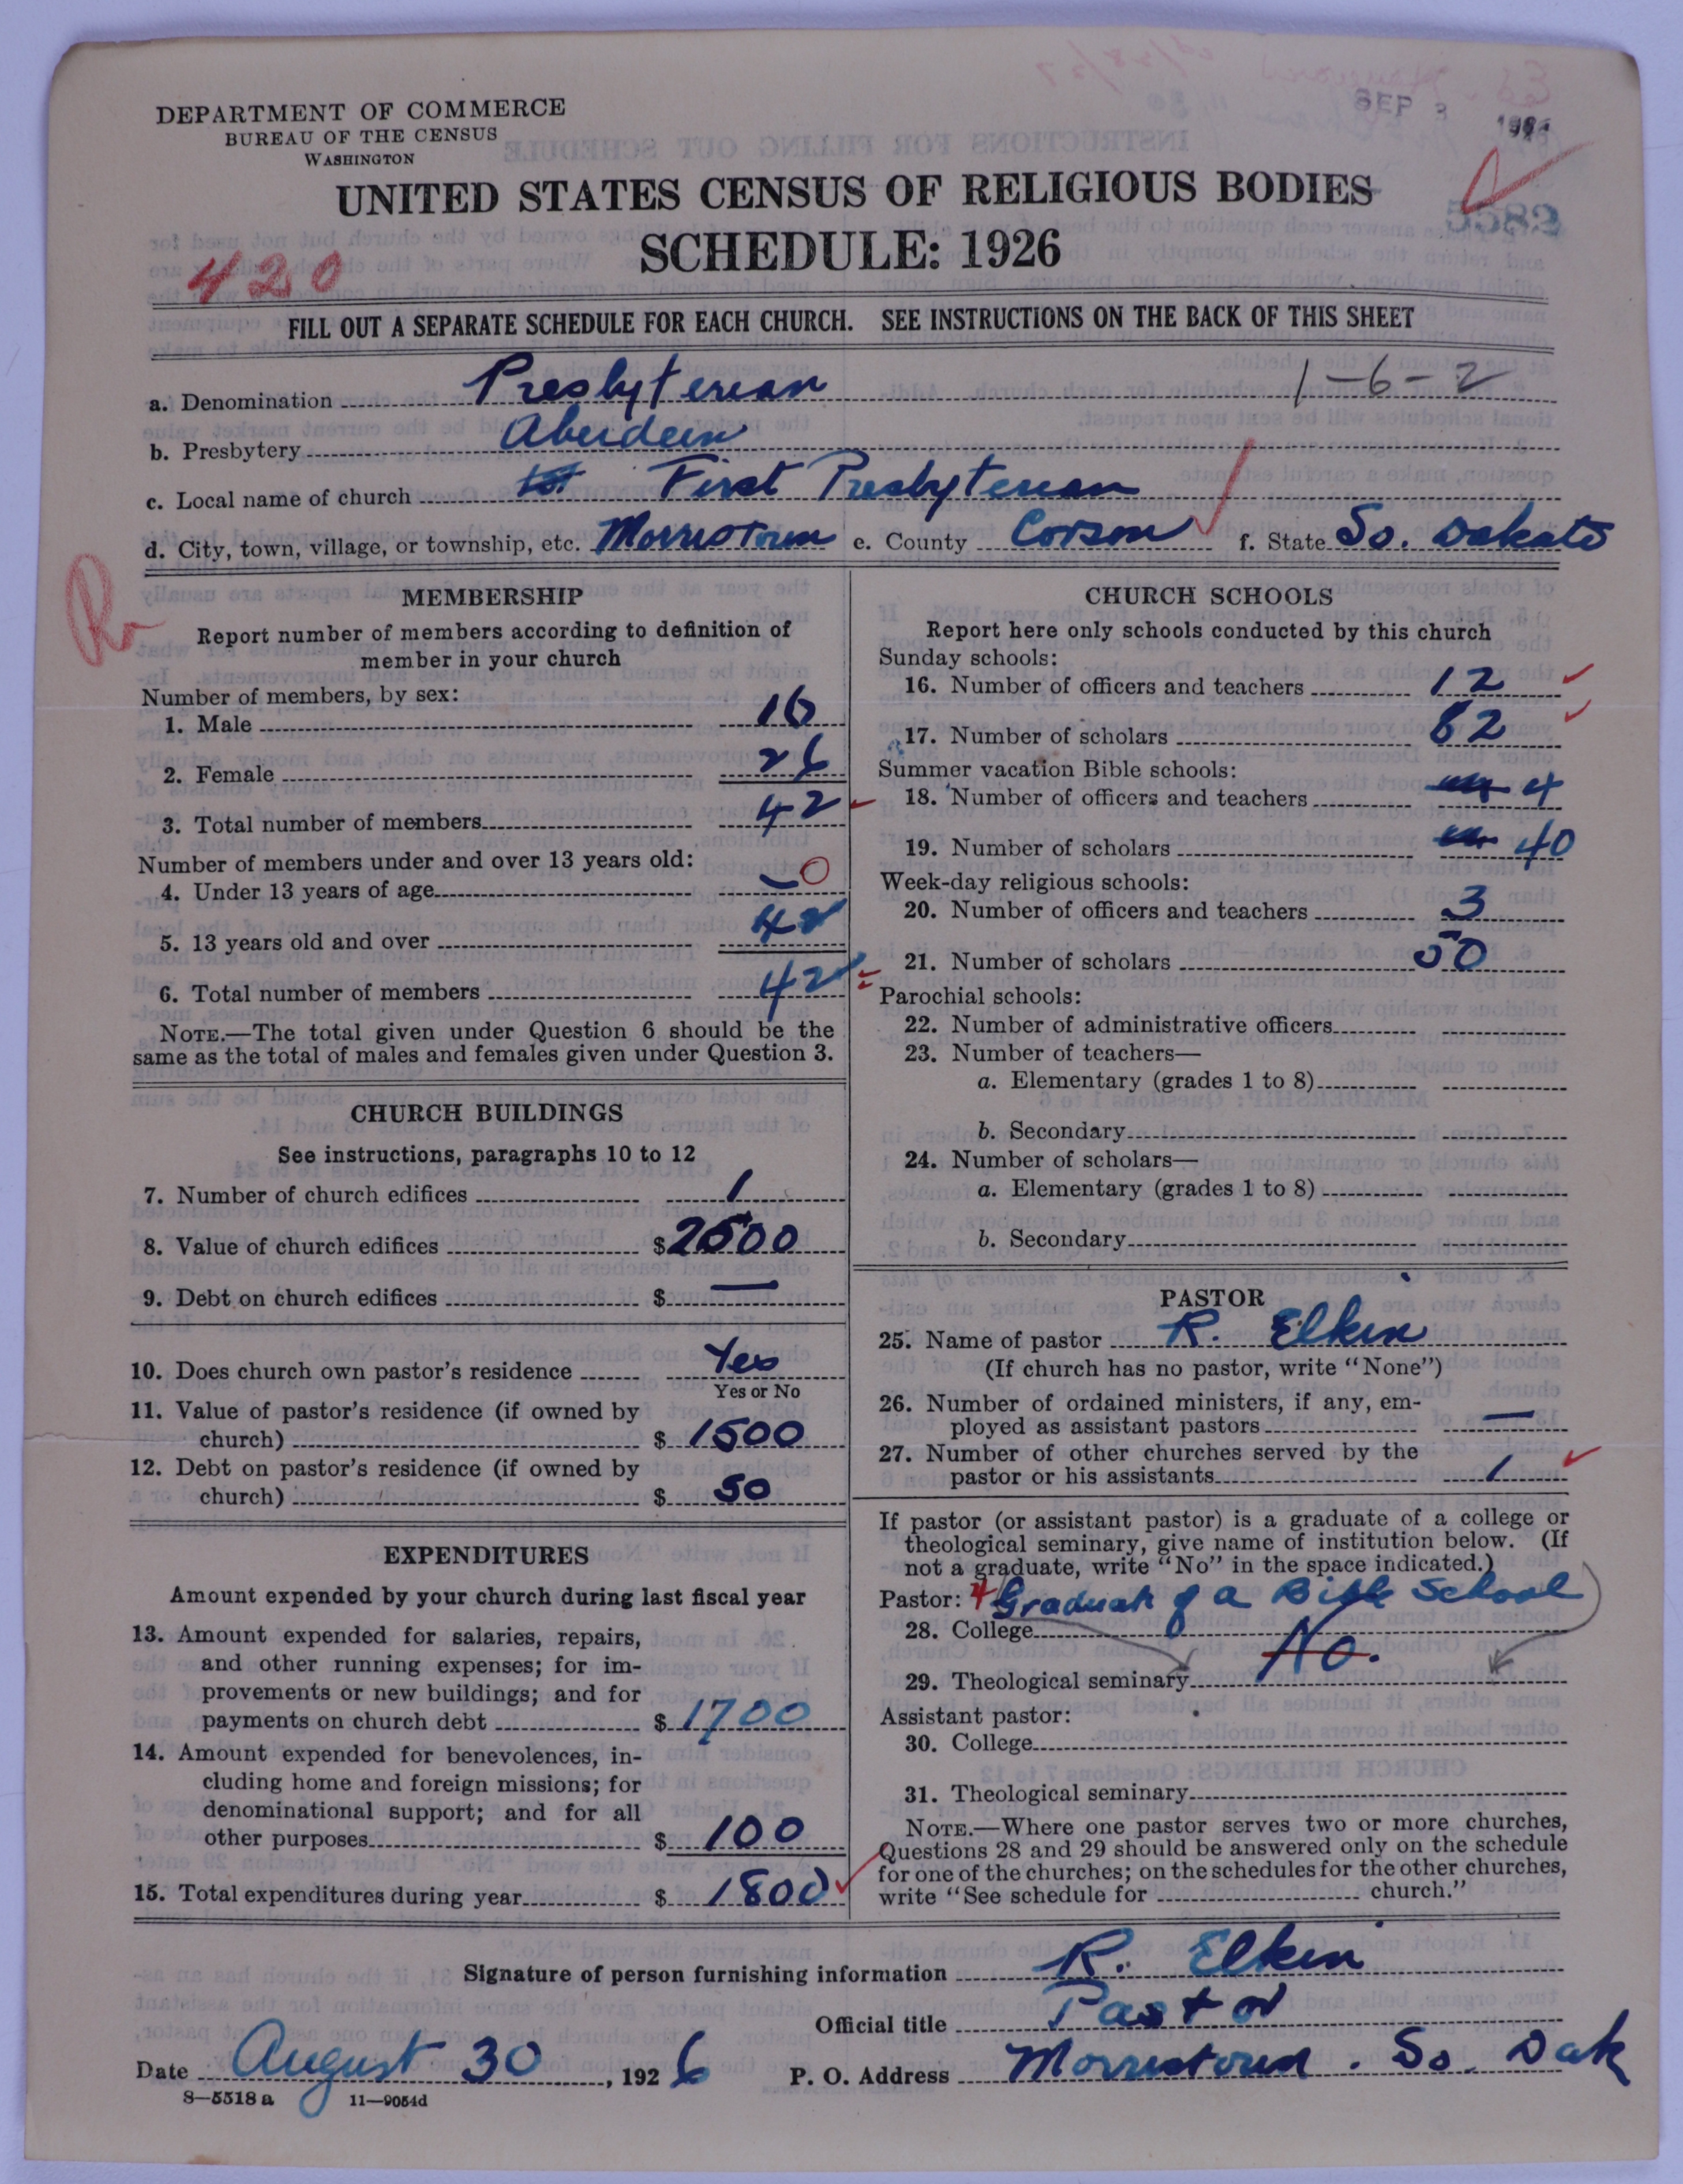 SEP 3 1926
DEPARTMENT OF COMMERCE
BUREAU OF THE CENSUS
WASHINGTON
UNITED STATES CENSUS OF RELIGIOUS BODIES
5582
SCHEDULE: 1926
420
FILL OUT A SEPARATE SCHEDULE FOR EACH CHURCH. SEE INSTRUCTIONS ON THE BACK OF THIS SHEET
a. Denomination Presbyterian 1-6-2
b. Presbytery Aberdeen
c. Local name of church 1st First Presbyterian
d. City, town, village, or township, etc. Morristown e. County Corson f. State So. Dakota
MEMBERSHIP
Report number of members according to definition of
member in your church
Number of members, by sex:
1. Male 16
2. Female 26
3. Total number of members 42
Number of members under and over 13 years old:
4. Under 13 years of age 0
5. 13 years old and over 42
6. Total number of members 42
NOTE.—The total given under Question 6 should be the
same as the total of males and females given under Question 3.
CHURCH BUILDINGS
See instructions, paragraphs 10 to 12
7. Number of church edifices 1
8. Value of church edifices $2500
9. Debt on church edifices $ —
10. Does church own pastor's residence Yes
Yes or No
11. Value of pastor's residence (if owned by
church) $ 1500
12. Debt on pastor's residence (if owned by
church) $ 50
EXPENDITURES
Amount expended by your church during last fiscal year
13. Amount expended for salaries, repairs,
and other running expenses; for im-
provements or new buildings; and for
payments on church debt $ 1700
14. Amount expended for benevolences, in-
cluding home and foreign missions; for
denominational support; and for all
other purposes $ 100
15. Total expenditures during year $ 1800
CHURCH SCHOOLS
Report here only schools conducted by this church
Sunday schools:
16. Number of officers and teachers 12
17. Number of scholars 82
Summer vacation Bible schools:
18. Number of officers and teachers 4
19. Number of scholars 40
Week-day religious schools:
20. Number of officers and teachers 3
21. Number of scholars 50
Parochial schools:
22. Number of administrative officers
23. Number of teachers—
a. Elementary (grades 1 to 8)
b. Secondary
24. Number of scholars—
a. Elementary (grades 1 to 8)
b. Secondary
PASTOR
25. Name of pastor R. Elkin
(If church has no pastor, write "None")
26. Number of ordained ministers, if any, em-
ployed as assistant pastors —
27. Number of other churches served by the
pastor or his assistants 1
If pastor (or assistant pastor) is a graduate of a college or
theological seminary, give name of institution below. (If
not a graduate, write "No" in the space indicated.)
Pastor: 4 Graduate of a Bible School
28. College No.
29. Theological seminary
Assistant pastor:
30. College
31. Theological seminary
NOTE.—Where one pastor serves two or more churches,
Questions 28 and 29 should be answered only on the schedule
for one of the churches; on the schedules for the other churches,
write "See schedule for church."
Signature of person furnishing information R. Elkin
Official title Pastor
Date August 30, 1926 P. O. Address Morristown. So. Dak
8—5518 a 11—9054d